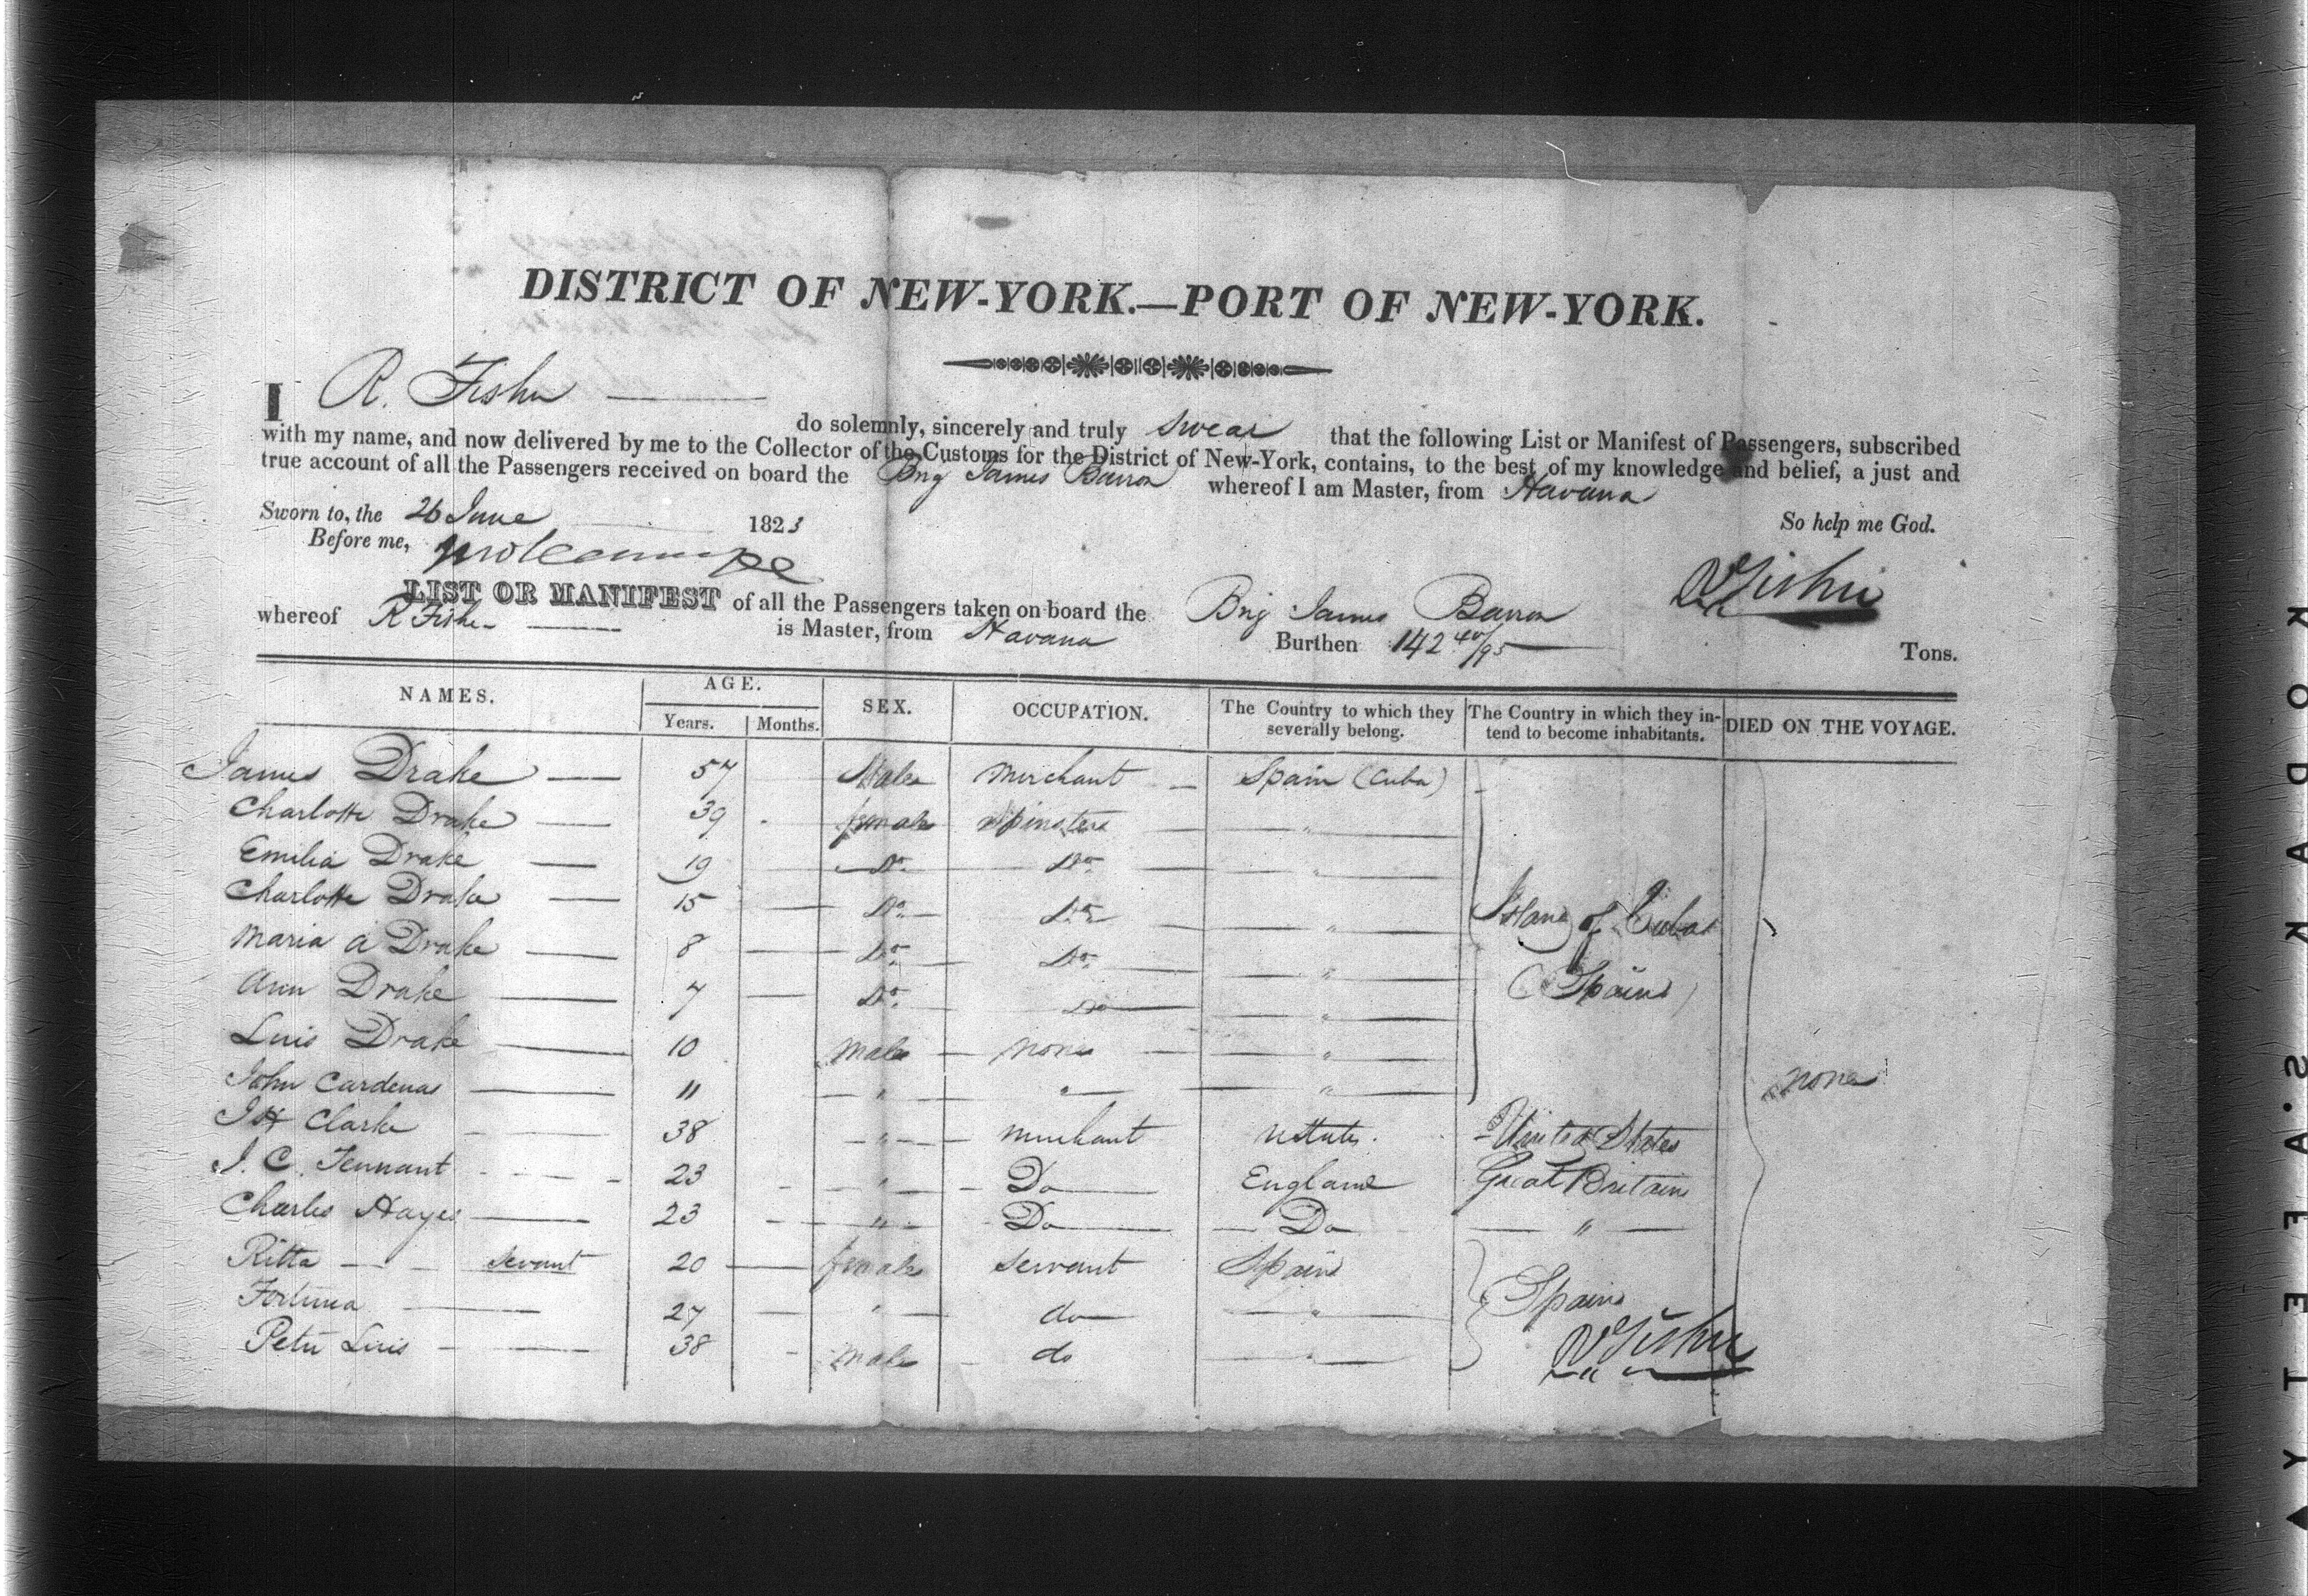 DISTRICT OF NEW-YORK.—PORT OF NEW-YORK.
I R. Fisher do solemnly, sincerely and truly swear that the following List or Manifest of Passengers, subscribed
with my name, and now delivered by me to the Collector of the Customs for the District of New-York, contains, to the best of my knowledge and belief, a just and
true account of all the Passengers received on board the Brig James Barron whereof I am Master, from Havana
Sworn to, the 26 June 1823 So help me God.
Before me,
R Fisher
LIST OR MANIFEST of all the Passengers taken on board the Brig James Barron
whereof R Fisher is Master, from Havana Burthen 142 40/95 Tons.
NAMES. AGE. Years. Months. SEX. OCCUPATION. The Country to which they severally belong. The Country in which they intend to become inhabitants. DIED ON THE VOYAGE.
James Drake 57 Male Merchant Spain (Cuba)
Charlotte Drake 39 female Spinsters "
Emilia Drake 19 Do Do "
Charlotte Drake 15 Do Do " Island of Cuba
Maria A Drake 8 Do Do "
Ann Drake 7 Do Do " (Spain)
Luis Drake 10 male none "
John Cardenas 11 " " " none
J H Clarke 38 " merchant UStates United States
J. C. Tennant 23 " Do England Great Britain
Charles Hayes 23 " Do Do "
Ritta servant 20 female servant Spain
Fortuna 27 " do " Spain
Peter Luis 38 male do "
R Fisher
KODAK S.A.F.E.T.Y